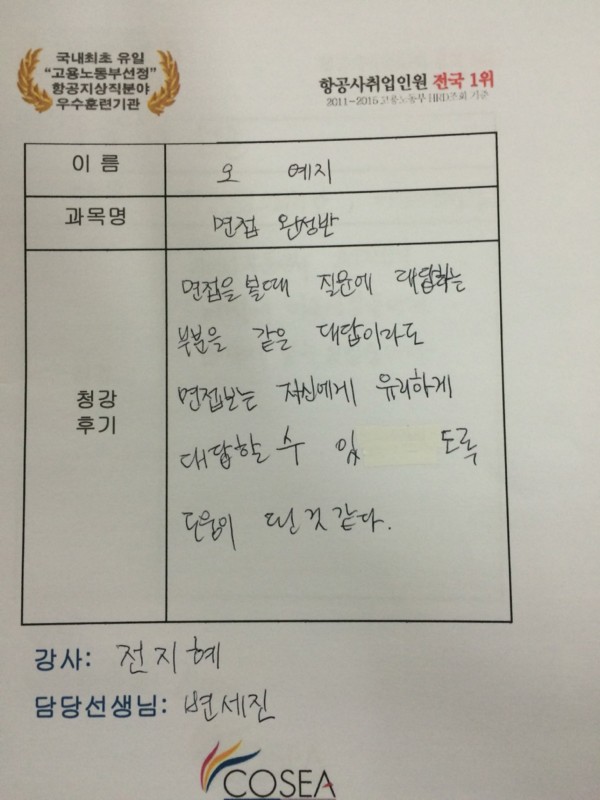 국내최초 유일
“고용노동부선정”
항공지상직분야
우수훈련기관
항공사취업인원 전국 1위
2011~2015 고용노동부 HRD조회 기준
이 름
오 예지
과목명
면접 완성반
청강
후기
면접을 볼때 질문에 대답하는
부분을 같은 대답이라도
면접보는 자신에게 유리하게
대답할 수 있 도록
도움이 된것 같다.
강사: 전지혜
담당선생님: 변세진
COSEA